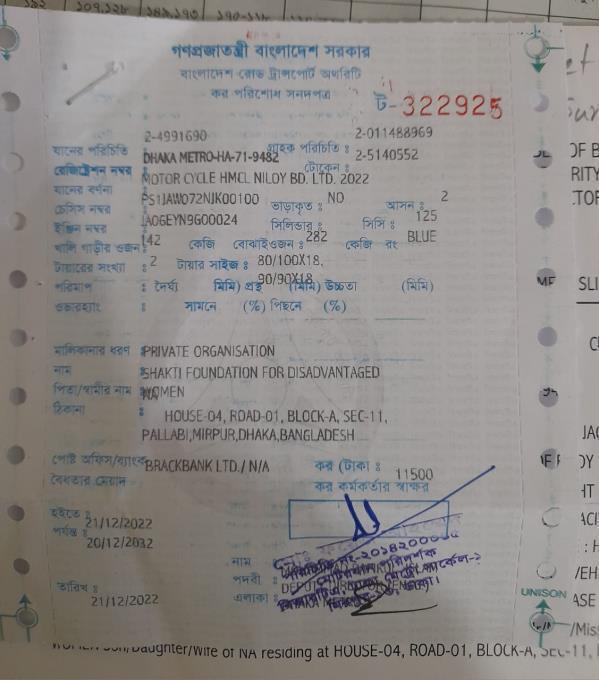 গণপ্রজাতন্ত্রী বাংলাদেশ সরকার
বাংলাদেশ রোড ট্রান্সপোর্ট অথরিটি
কর পরিশোধ সনদপত্র
ট-322925
2-4991690 2-011488969
যানের পরিচিতি গ্রাহক পরিচিতি : 2-5140552
রেজিষ্ট্রেশন নম্বর DHAKA METRO-HA-71-9482 টোকেন :
যানের বর্ণনা MOTOR CYCLE HMCL NILOY BD. LTD. 2022
চেসিস নম্বর PS1JAW072NJK00100 ভাড়াকৃত : NO আসন : 2
ইঞ্জিন নম্বর JA06EYN9G00024 সিলিন্ডার : সিসি : 125
খালি গাড়ীর ওজন : 142 কেজি বোঝাইওজন : 282 কেজি রং BLUE
টায়ারের সংখ্যা : 2 টায়ার সাইজ : 80/100X18,
90/90X18
পরিমাপ : দৈর্ঘ্য (মিমি) প্রস্থ (মিমি) উচ্চতা (মিমি)
ওভারহ্যাং : সামনে (%) পিছনে (%)
মালিকানার ধরণ : PRIVATE ORGANISATION
নাম : SHAKTI FOUNDATION FOR DISADVANTAGED
WOMEN
পিতা/স্বামীর নাম : NA
ঠিকানা : HOUSE-04, ROAD-01, BLOCK-A, SEC-11,
PALLABI,MIRPUR,DHAKA,BANGLADESH
পোষ্ট অফিস/ব্যাংক : BRACKBANK LTD./ N/A কর (টাকা : 11500
বৈধতার মেয়াদ কর কর্মকর্তার স্বাক্ষর
হইতে : 21/12/2022
পর্যন্ত : 20/12/2032
নাম
পদবী :
তারিখ : 21/12/2022 এলাকা :
UNISON
WOMEN Son/Daughter/Wife of NA residing at HOUSE-04, ROAD-01, BLOCK-A, SEC-11,